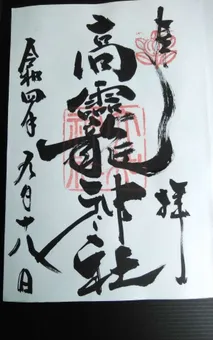 奉拝
高靇神社
令和四年五月十八日